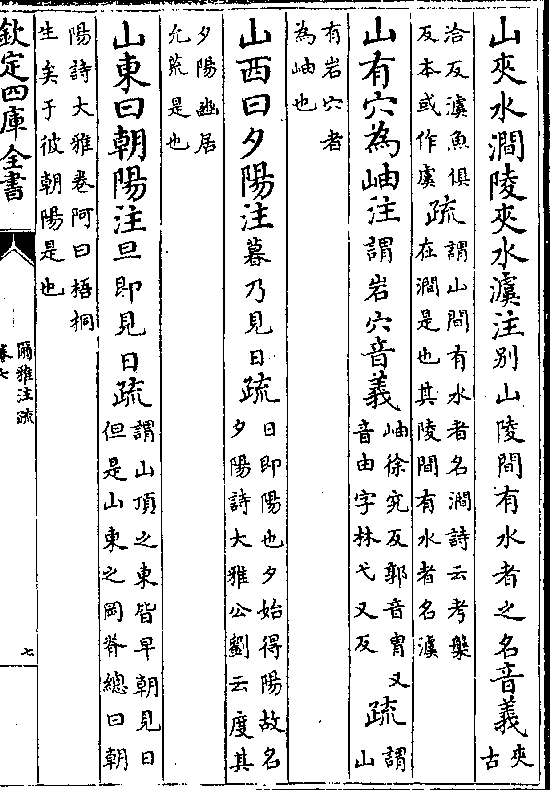 山夾水澗陵夾水澞注别山陵間有水者之名音義夾古
洽反澞魚俱反本或作虞疏謂山間有水者名澗詩云考槃在澗是也其陵間有水者名澞
山有穴為岫注謂岩穴音義岫徐究反郭音胄又音由字林弋又反疏謂山
有岩穴者為岫也
山西曰夕陽注暮乃見日疏日即陽也夕始得陽故名夕陽詩大雅公劉云度其
夕陽豳居允荒是也
山東曰朝陽注旦即見日疏謂山頂之東皆早朝見日但是山東之岡脊總曰朝
陽詩大雅卷阿曰梧桐生矣于彼朝陽是也
欽定四庫全書
爾雅注疏
卷七
七